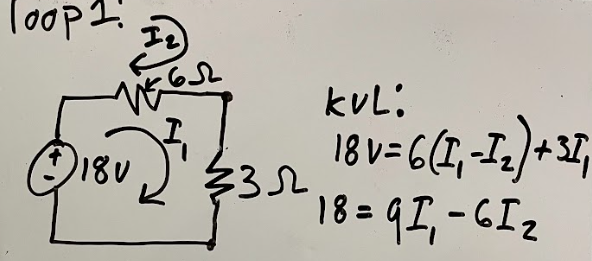 loop 1:
I₂
6Ω
+
-
18V
I₁
3Ω
KVL:
18V=6(I₁-I₂)+3I₁
18=9I₁-6I₂